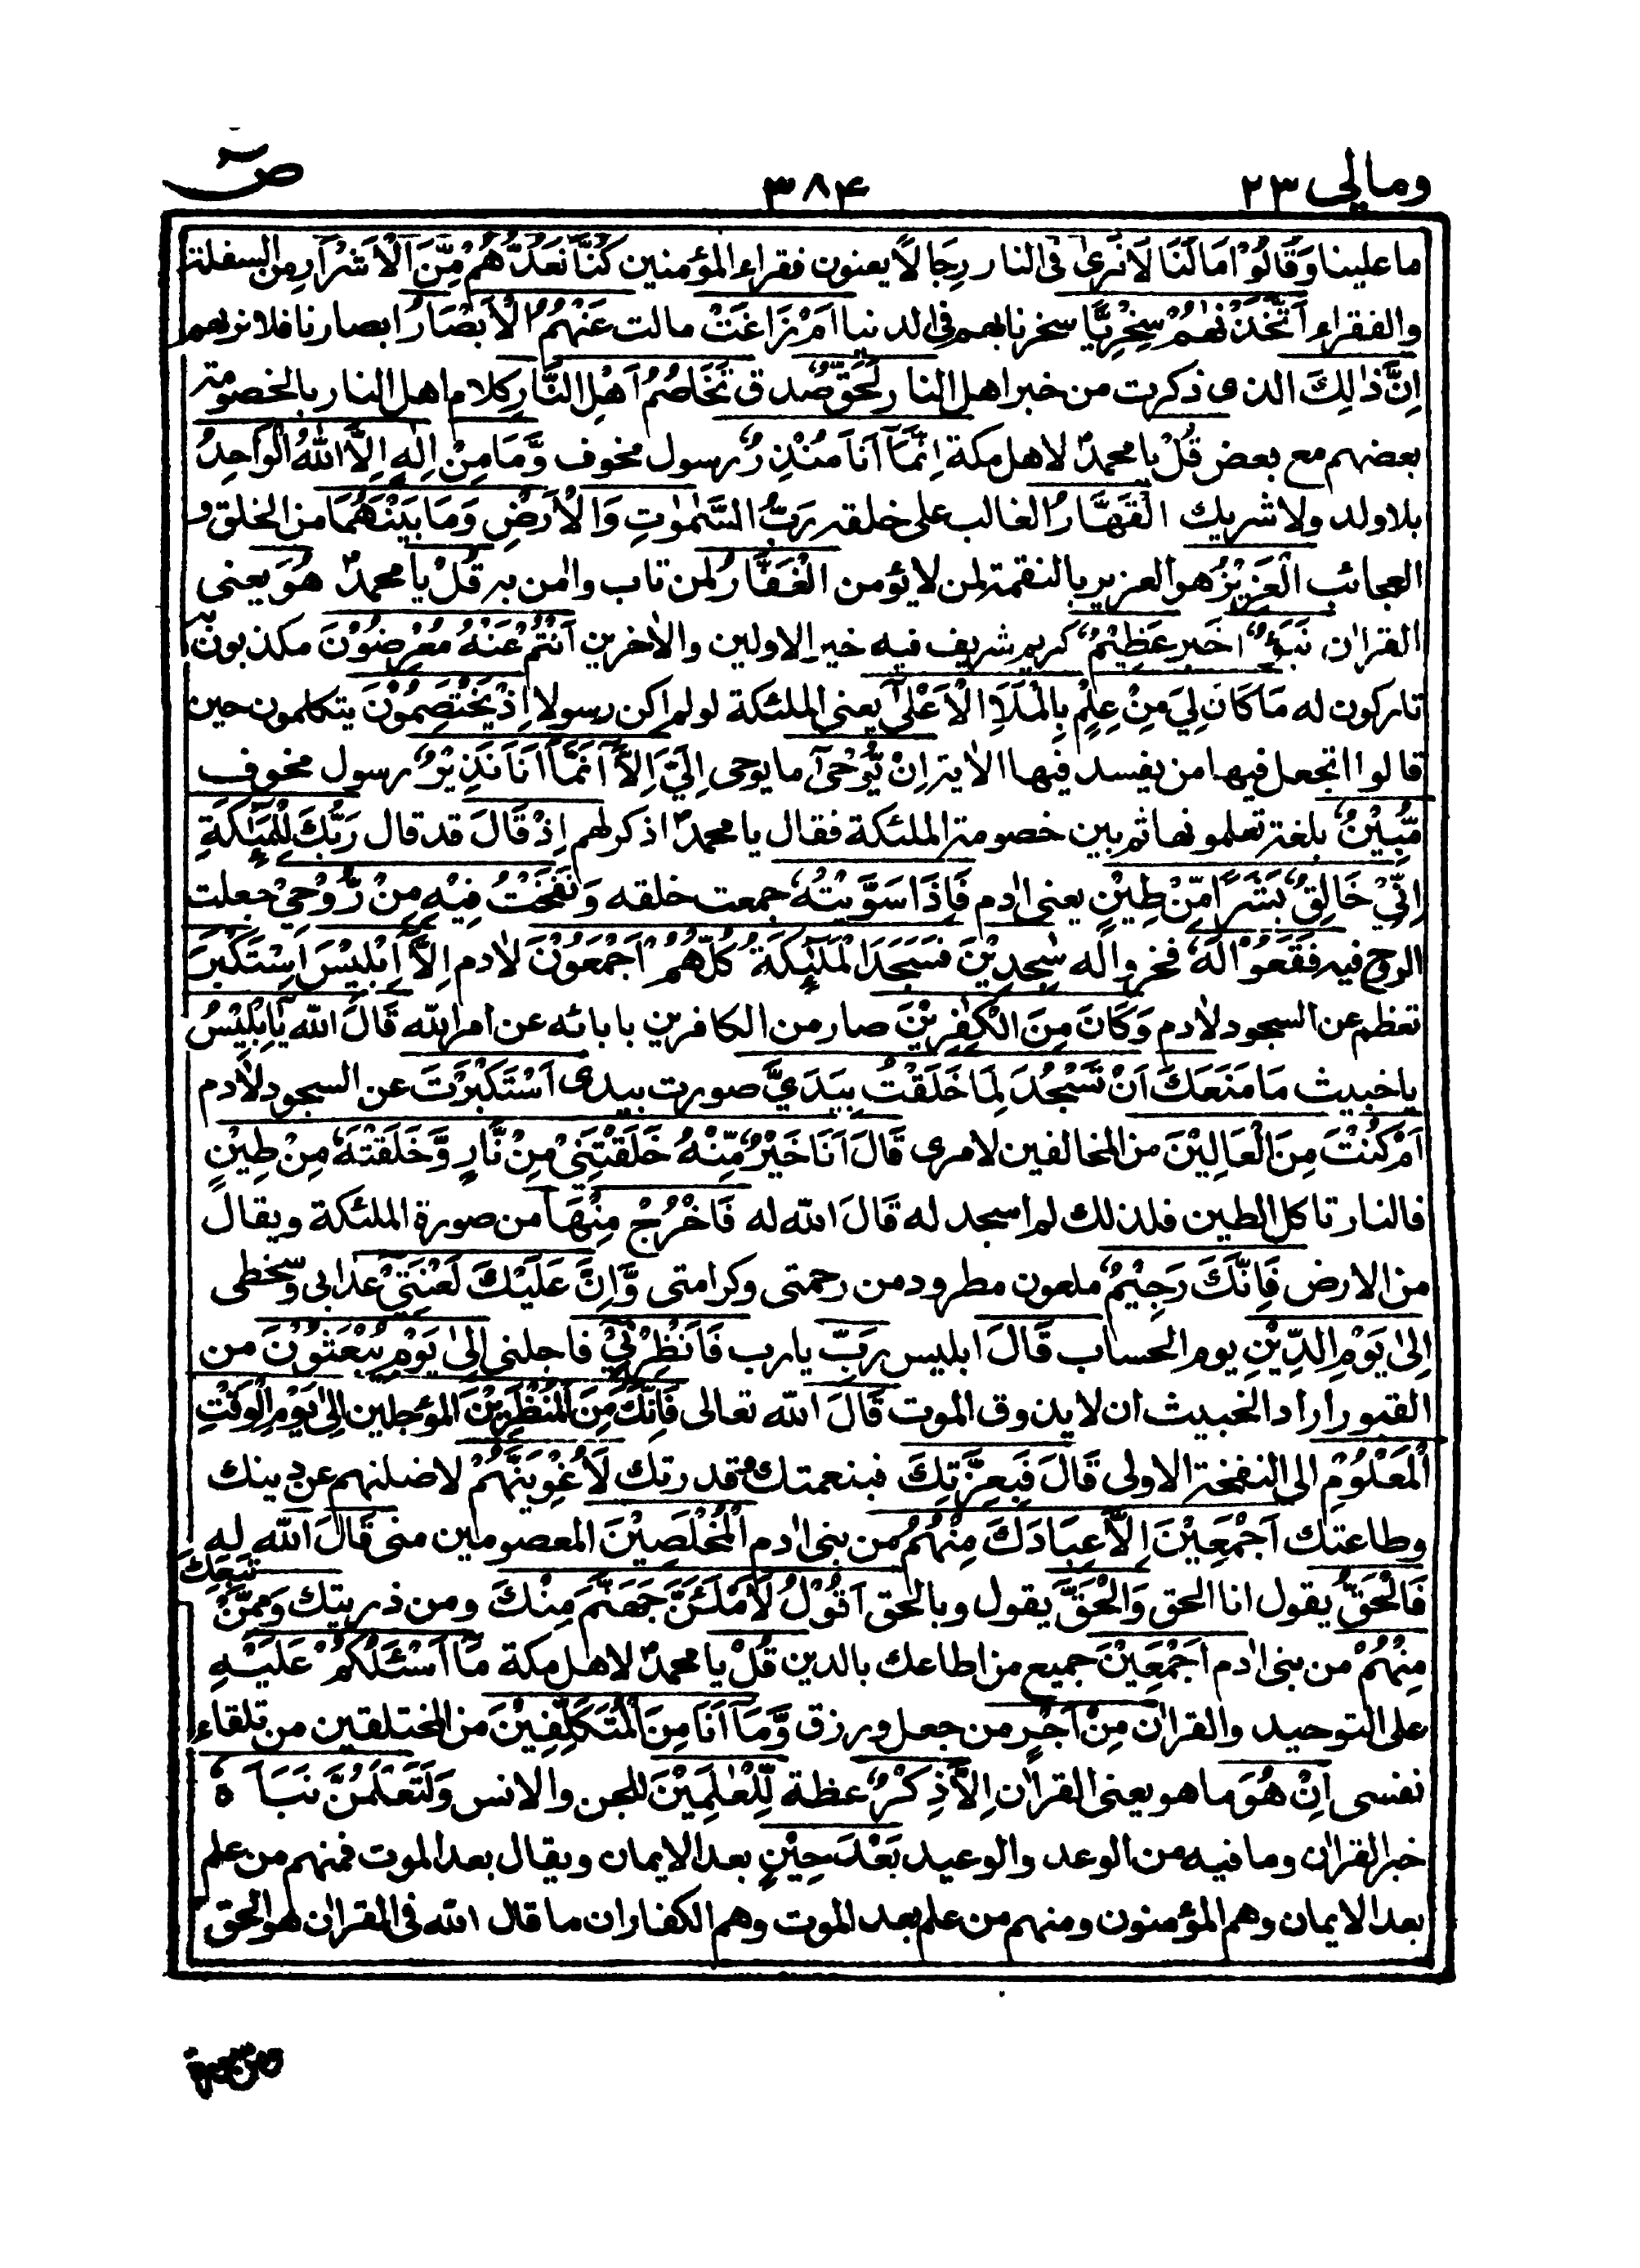 ومالی ٢٣
٣٨۴
صٓ
ما علينا وَقَالُوْا مَا لَنَا لَا نَرٰى فى النار رِجَالًا يعنون فقراء المؤمنين كُنَّا نَعُدُّهُمْ مِّنَ الْاَشْرَارِ من السفلة
والفقراء اَتَّخَذْنٰهُمْ سِخْرِيًّا سخرنا بهم فى الدنيا اَمْ زَاغَتْ مالت عَنْهُمُ الْاَبْصَارُ ابصارنا فلا نريهم
اِنَّ ذٰلِكَ الذى ذكرت من خبر اهل النار لَحَقٌّ صدق تَخَاصُمُ اَهْلِ النَّارِ كلام اهل النار بالخصومة
بعضهم مع بعض قُلْ يا محمدؐ لاهل مكة اِنَّمَآ اَنَا مُنْذِرٌ رسول مخوف وَّمَا مِنْ اِلٰهٍ اِلَّا اللّٰهُ الْوَاحِدُ
بلا ولد ولا شريك الْقَهَّارُ الغالب على خلقه رَبُّ السَّمٰوٰتِ وَالْاَرْضِ وَمَا بَيْنَهُمَا من الخلق و
العجائب الْعَزِيْزُ هو العزيز بالنقمة لمن لا يؤمن الْغَفَّارُ لمن تاب وامن به قُلْ يا محمدؐ هُوَ يعنى
القران نَبَؤٌا خبر عَظِيْمٌ كريم شريف فيه خبر الاولين والاخرين اَنْتُمْ عَنْهُ مُعْرِضُوْنَ مكذبون به
تاركون له مَا كَانَ لِيَ مِنْ عِلْمٍ بِالْمَلَاِ الْاَعْلٰى يعنى الملئكة لو لم اكن رسولا اِذْ يَخْتَصِمُوْنَ يتكلمون حين
قالوا اتجعل فيها من يفسد فيها الاية اِنْ يُّوْحٰى ما يوحى اِلَيَّ اِلَّآ اَنَّمَآ اَنَا نَذِيْرٌ رسول مخوف
مُّبِيْنٌ بلغة تعلمونها ثم بين خصومة الملئكة فقال يا محمدؐ اذكر لهم اِذْ قَالَ قد قال رَبُّكَ لِلْمَلٰٓئِكَةِ
اِنِّيْ خَالِقٌ بَشَرًا مِّنْ طِيْنٍ يعنى ادم فَاِذَا سَوَّيْتُهٗ جمعت خلقه وَنَفَخْتُ فِيْهِ مِنْ رُّوْحِيْ جعلت
الروح فيه فَقَعُوْا لَهٗ فخروا له سٰجِدِيْنَ فَسَجَدَ الْمَلٰٓئِكَةُ كُلُّهُمْ اَجْمَعُوْنَ لادم اِلَّآ اِبْلِيْسَ اِسْتَكْبَرَ
تعظم عن السجود لادم وَكَانَ مِنَ الْكٰفِرِيْنَ صار من الكافرين بابائه عن امر الله قَالَ الله يٰٓاِبْلِيْسُ
يا خبيث مَا مَنَعَكَ اَنْ تَسْجُدَ لِمَا خَلَقْتُ بِيَدَيَّ صورت بيدى اَسْتَكْبَرْتَ عن السجود لادم
اَمْ كُنْتَ مِنَ الْعَالِيْنَ من المخالفين لامرى قَالَ اَنَا خَيْرٌ مِّنْهُ خَلَقْتَنِيْ مِنْ نَّارٍ وَّخَلَقْتَهٗ مِنْ طِيْنٍ
فالنار تاكل الطين فلذلك لم اسجد له قَالَ الله له فَاخْرُجْ مِنْهَا من صورة الملئكة ويقال
من الارض فَاِنَّكَ رَجِيْمٌ ملعون مطرود من رحمتى وكرامتى وَّاِنَّ عَلَيْكَ لَعْنَتِيْ عذابى وسخطى
اِلٰى يَوْمِ الدِّيْنِ يوم الحساب قَالَ ابليس رَبِّ يارب فَاَنْظِرْنِيْ فاجلنى اِلٰى يَوْمِ يُبْعَثُوْنَ من
القبور اراد الخبيث ان لا يذوق الموت قَالَ الله تعالى فَاِنَّكَ مِنَ الْمُنْظَرِيْنَ المؤجلين اِلٰى يَوْمِ الْوَقْتِ
الْمَعْلُوْمِ الى النفخة الاولى قَالَ فَبِعِزَّتِكَ فبنعمتك وقدرتك لَاُغْوِيَنَّهُمْ لاضلنهم عن دينك
وطاعتك اَجْمَعِيْنَ اِلَّا عِبَادَكَ مِنْهُمُ من بنى ادم الْمُخْلَصِيْنَ المعصومين منى قَالَ الله له
فَالْحَقُّ يقول انا الحق وَالْحَقَّ يقول وبالحق اَقُوْلُ لَاَمْلَئَنَّ جَهَنَّمَ مِنْكَ ومن ذريتك وَمِمَّنْ تَبِعَكَ
مِنْهُمْ من بنى ادم اَجْمَعِيْنَ جميع من اطاعك بالدين قُلْ يا محمدؐ لاهل مكة مَآ اَسْئَلُكُمْ عَلَيْهِ
على التوحيد والقران مِنْ اَجْرٍ من جعل ورزق وَّمَآ اَنَا مِنَ الْمُتَكَلِّفِيْنَ من المختلقين من تلقاء
نفسى اِنْ هُوَ ما هو يعنى القران اِلَّا ذِكْرٌ عظة لِّلْعٰلَمِيْنَ للجن والانس وَلَتَعْلَمُنَّ نَبَاَهٗ
خبر القران وما فيه من الوعد والوعيد بَعْدَ حِيْنٍ بعد الايمان ويقال بعد الموت فمنهم من علم
بعد الايمان وهم المؤمنون ومنهم من علم بعد الموت وهم الكفار ان ما قال الله فى القران هو الحق